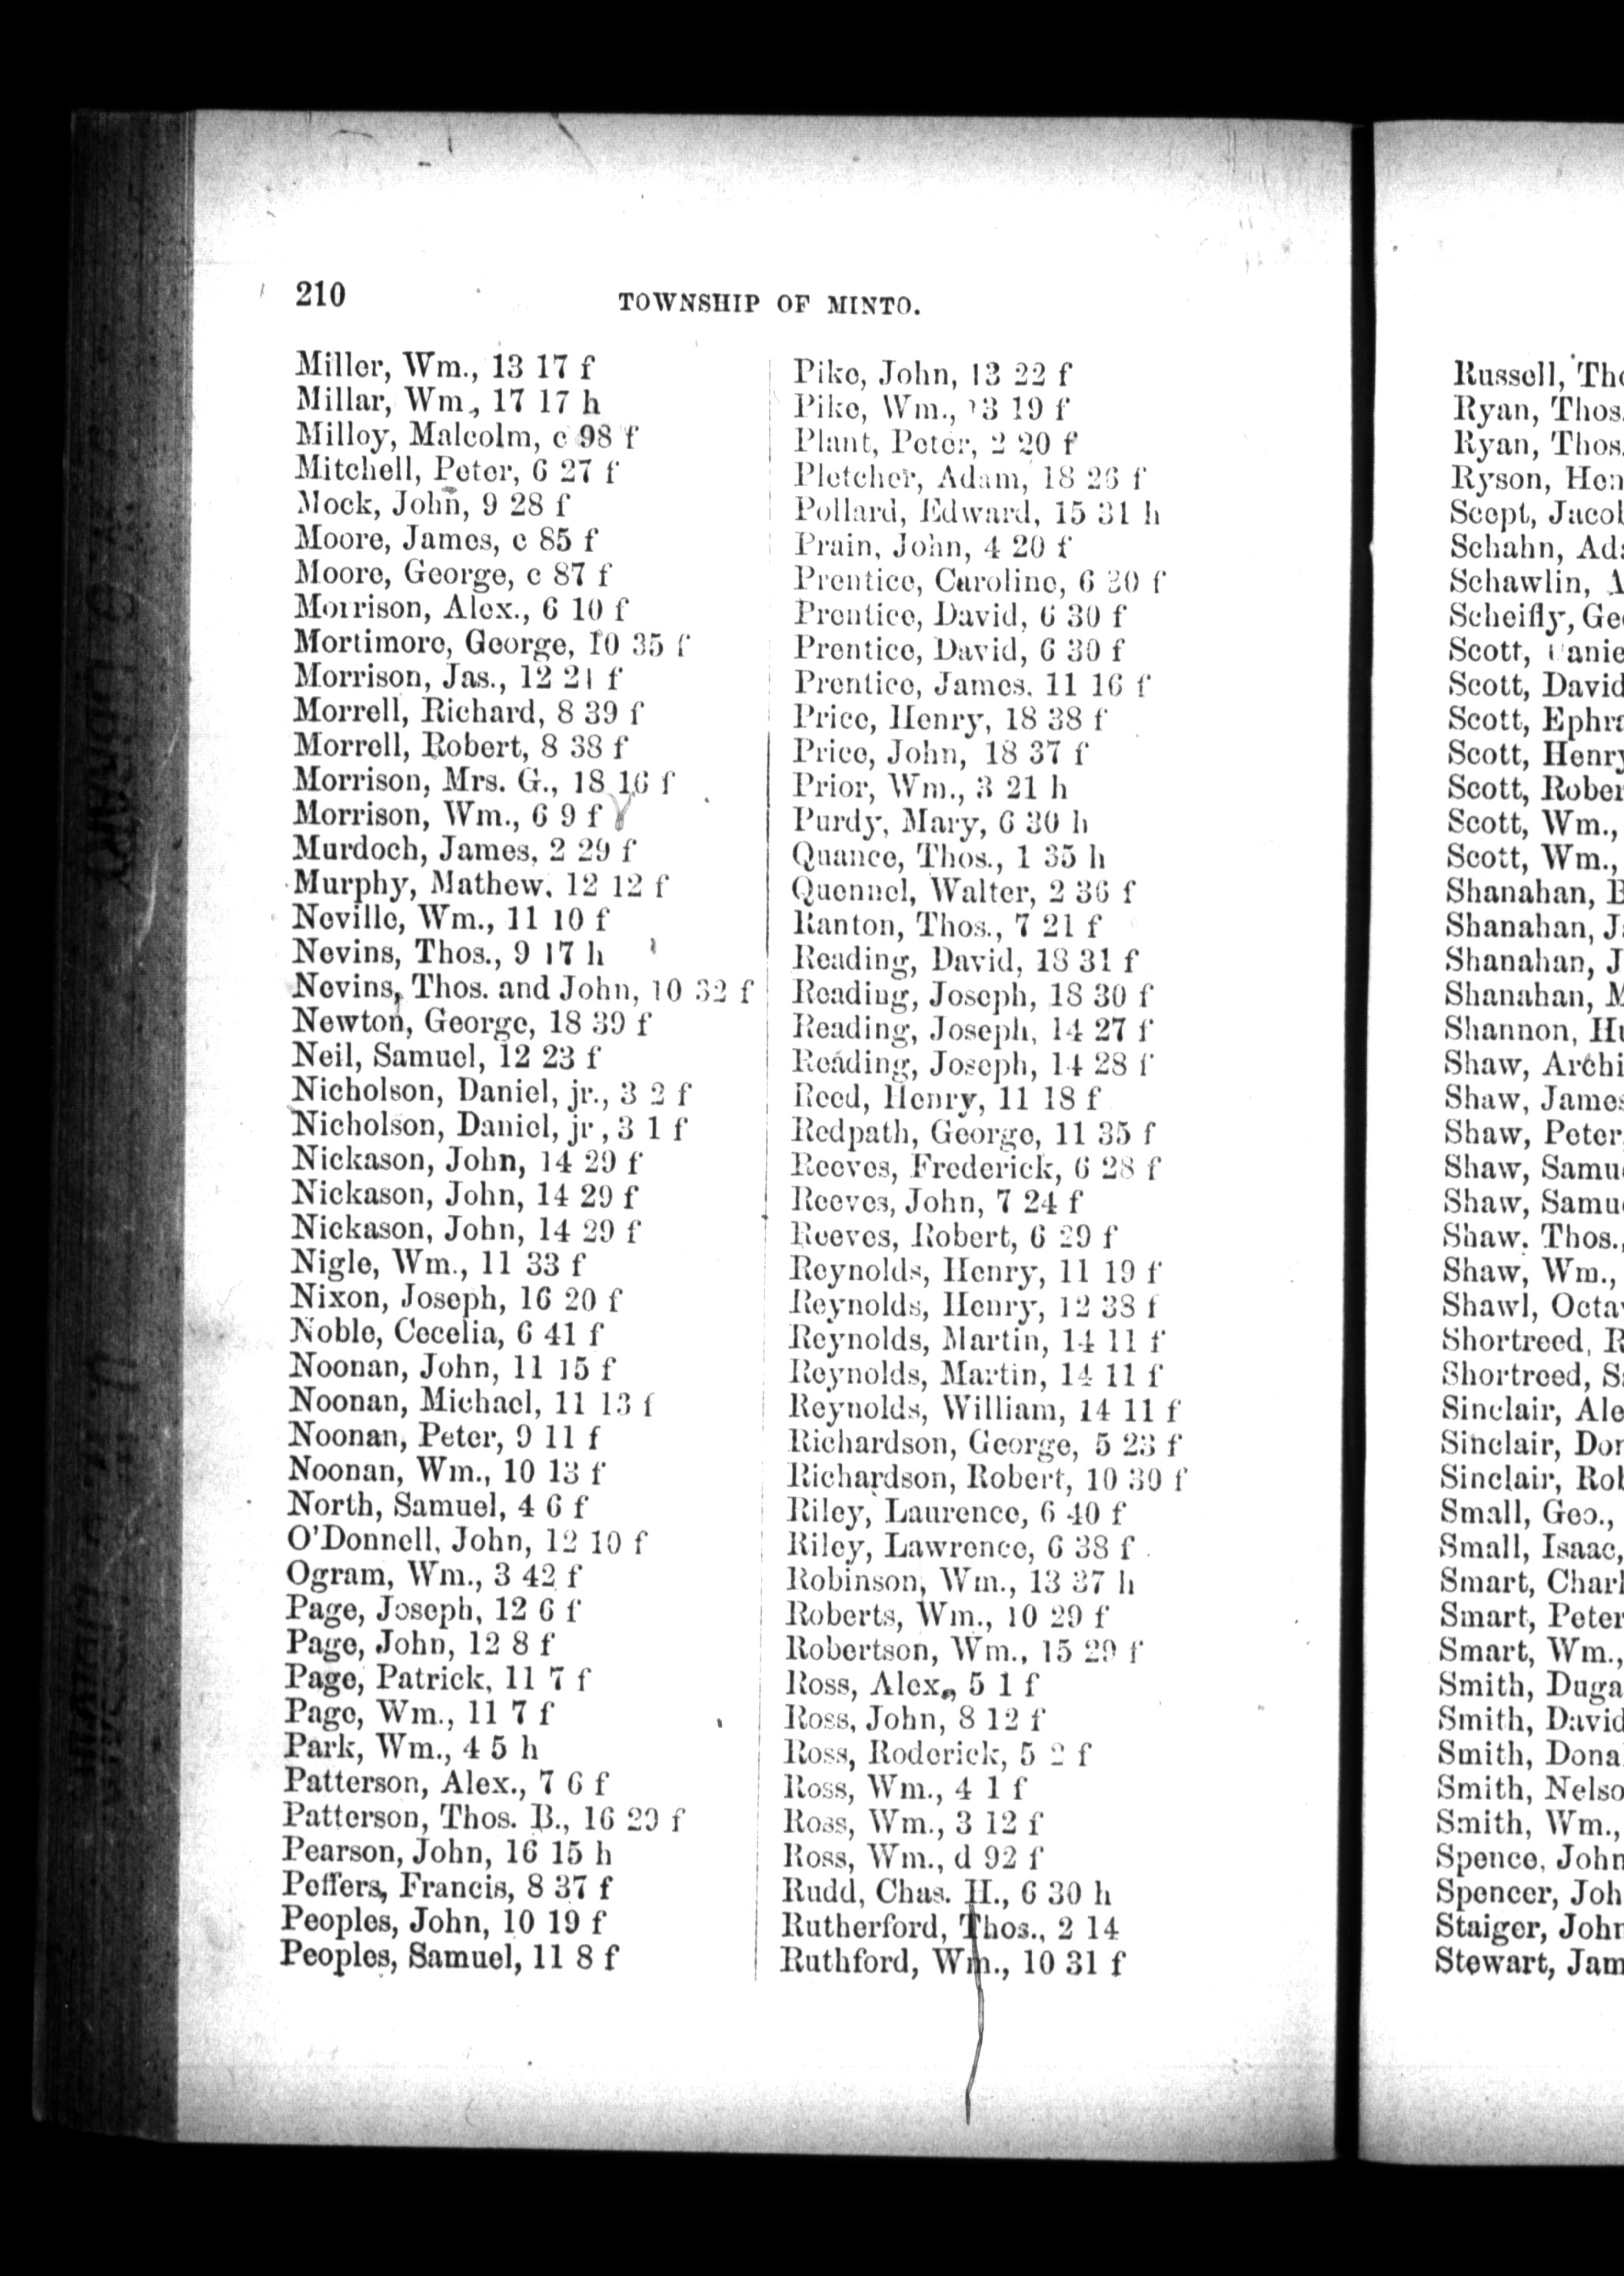 210
TOWNSHIP OF MINTO.
Miller, Wm., 13 17 f
Millar, Wm., 17 17 h
Milloy, Malcolm, c 98 f
Mitchell, Peter, 6 27 f
Mock, John, 9 28 f
Moore, James, c 85 f
Moore, George, c 87 f
Morrison, Alex., 6 10 f
Mortimore, George, 10 35 f
Morrison, Jas., 12 21 f
Morrell, Richard, 8 39 f
Morrell, Robert, 8 38 f
Morrison, Mrs. G., 18 16 f
Morrison, Wm., 6 9 f
Murdoch, James, 2 29 f
Murphy, Mathew, 12 12 f
Neville, Wm., 11 10 f
Nevins, Thos., 9 17 h
Nevins, Thos. and John, 10 32 f
Newton, George, 18 39 f
Neil, Samuel, 12 23 f
Nicholson, Daniel, jr., 3 2 f
Nicholson, Daniel, jr , 3 1 f
Nickason, John, 14 29 f
Nickason, John, 14 29 f
Nickason, John, 14 29 f
Nigle, Wm., 11 33 f
Nixon, Joseph, 16 20 f
Noble, Cecelia, 6 41 f
Noonan, John, 11 15 f
Noonan, Michael, 11 13 f
Noonan, Peter, 9 11 f
Noonan, Wm., 10 13 f
North, Samuel, 4 6 f
O'Donnell, John, 12 10 f
Ogram, Wm., 3 42 f
Page, Joseph, 12 6 f
Page, John, 12 8 f
Page, Patrick, 11 7 f
Page, Wm., 11 7 f
Park, Wm., 4 5 h
Patterson, Alex., 7 6 f
Patterson, Thos. B., 16 29 f
Pearson, John, 16 15 h
Peffers, Francis, 8 37 f
Peoples, John, 10 19 f
Peoples, Samuel, 11 8 f
Pike, John, 13 22 f
Pike, Wm., 13 19 f
Plant, Peter, 2 20 f
Pletcher, Adam, 18 26 f
Pollard, Edward, 15 31 h
Prain, John, 4 20 f
Prentice, Caroline, 6 30 f
Prentice, David, 6 30 f
Prentice, David, 6 30 f
Prentice, James, 11 16 f
Price, Henry, 18 38 f
Price, John, 18 37 f
Prior, Wm., 3 21 h
Purdy, Mary, 6 30 h
Quance, Thos., 1 35 h
Quennel, Walter, 2 36 f
Ranton, Thos., 7 21 f
Reading, David, 18 31 f
Reading, Joseph, 18 30 f
Reading, Joseph, 14 27 f
Reading, Joseph, 14 28 f
Reed, Henry, 11 18 f
Redpath, George, 11 35 f
Reeves, Frederick, 6 28 f
Reeves, John, 7 24 f
Reeves, Robert, 6 29 f
Reynolds, Henry, 11 19 f
Reynolds, Henry, 12 38 f
Reynolds, Martin, 14 11 f
Reynolds, Martin, 14 11 f
Reynolds, William, 14 11 f
Richardson, George, 5 23 f
Richardson, Robert, 10 39 f
Riley, Laurence, 6 40 f
Riley, Lawrence, 6 38 f
Robinson, Wm., 13 37 h
Roberts, Wm., 10 29 f
Robertson, Wm., 15 29 f
Ross, Alex., 5 1 f
Ross, John, 8 12 f
Ross, Roderick, 5 2 f
Ross, Wm., 4 1 f
Ross, Wm., 3 12 f
Ross, Wm., d 92 f
Rudd, Chas. H., 6 30 h
Rutherford, Thos., 2 14
Ruthford, Wm., 10 31 f
Russell, Tho
Ryan, Thos.
Ryan, Thos.
Ryson, Hen
Scept, Jacol
Schahn, Ada
Schawlin, A
Scheifly, Geo
Scott, anie
Scott, David
Scott, Ephra
Scott, Henry
Scott, Rober
Scott, Wm.,
Scott, Wm.,
Shanahan, B
Shanahan, Ja
Shanahan, J
Shanahan, M
Shannon, Hu
Shaw, Archi
Shaw, James
Shaw, Peter
Shaw, Samu
Shaw, Samu
Shaw. Thos.,
Shaw, Wm.,
Shawl, Octav
Shortreed, R
Shortreed, Sa
Sinclair, Ale
Sinclair, Don
Sinclair, Rob
Small, Geo.,
Small, Isaac,
Smart, Charl
Smart, Peter
Smart, Wm.,
Smith, Duga
Smith, David
Smith, Dona
Smith, Nelso
Smith, Wm.,
Spence, John
Spencer, Joh
Staiger, John
Stewart, Jam